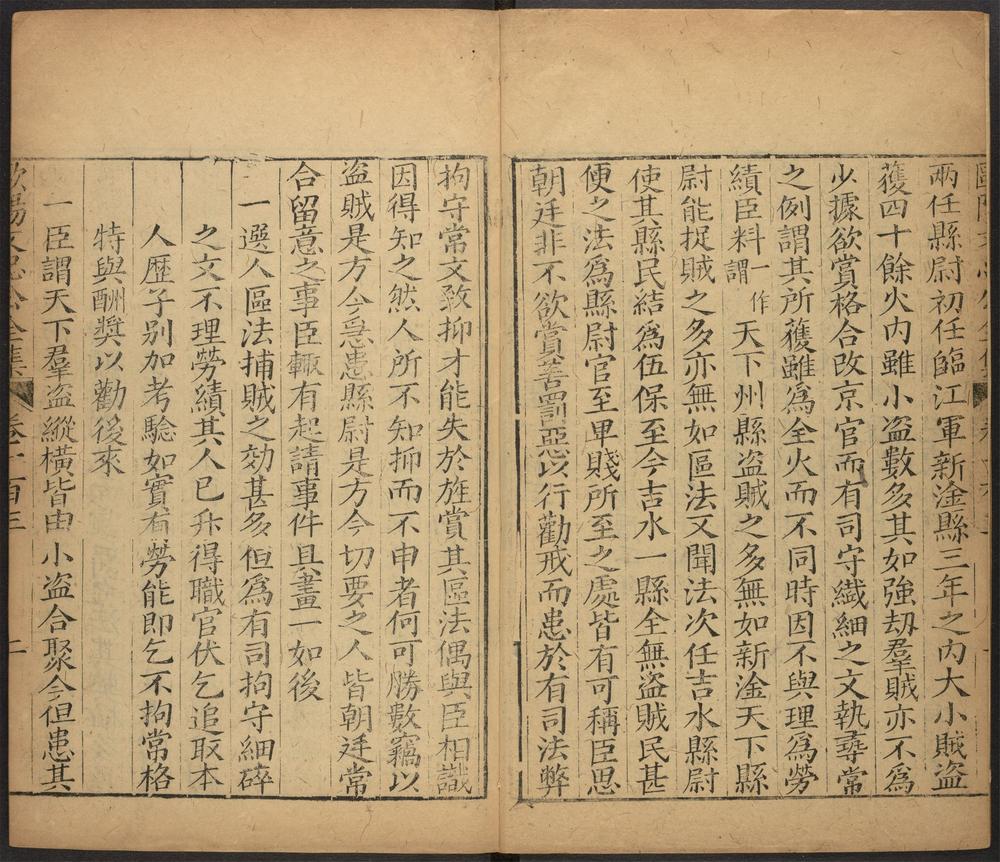 兩任縣尉初任臨江軍新淦縣三年之內大小賊盜
獲四十餘火內雖小盜數多其如強劫羣賊亦不爲
少據欲賞格合改京官而有司守纎細之文執尋常
之例謂其所獲雖爲全火而不同時因不與理爲勞
績臣料一作謂天下州縣盜賊之多無如新淦天下縣
尉能捉賊之多亦無如區法又聞法次任吉水縣尉
使其縣民結爲伍保至今吉水一縣全無盜賊民甚
便之法爲縣尉官至卑賤所至之處皆有可稱臣思
朝廷非不欲賞善罰惡以行勸戒而患於有司法弊
拘守常文致抑才能失於旌賞其區法偶與臣相識
因得知之然人所不知抑而不申者何可勝數竊以
盜賊是方今急患縣尉是方今切要之人皆朝廷常
合留意之事臣輙有起請事件具畫一如後
一選人區法捕賊之効甚多但爲有司拘守細碎
之文不理勞績其人已升得職官伏乞追取本
人歷子別加考驗如實有勞能即乞不拘常格
特與酬獎以勸後來
一臣謂天下羣盜縱橫皆由小盜合聚今但患其
歐陽文忠公全集 卷一百三 二